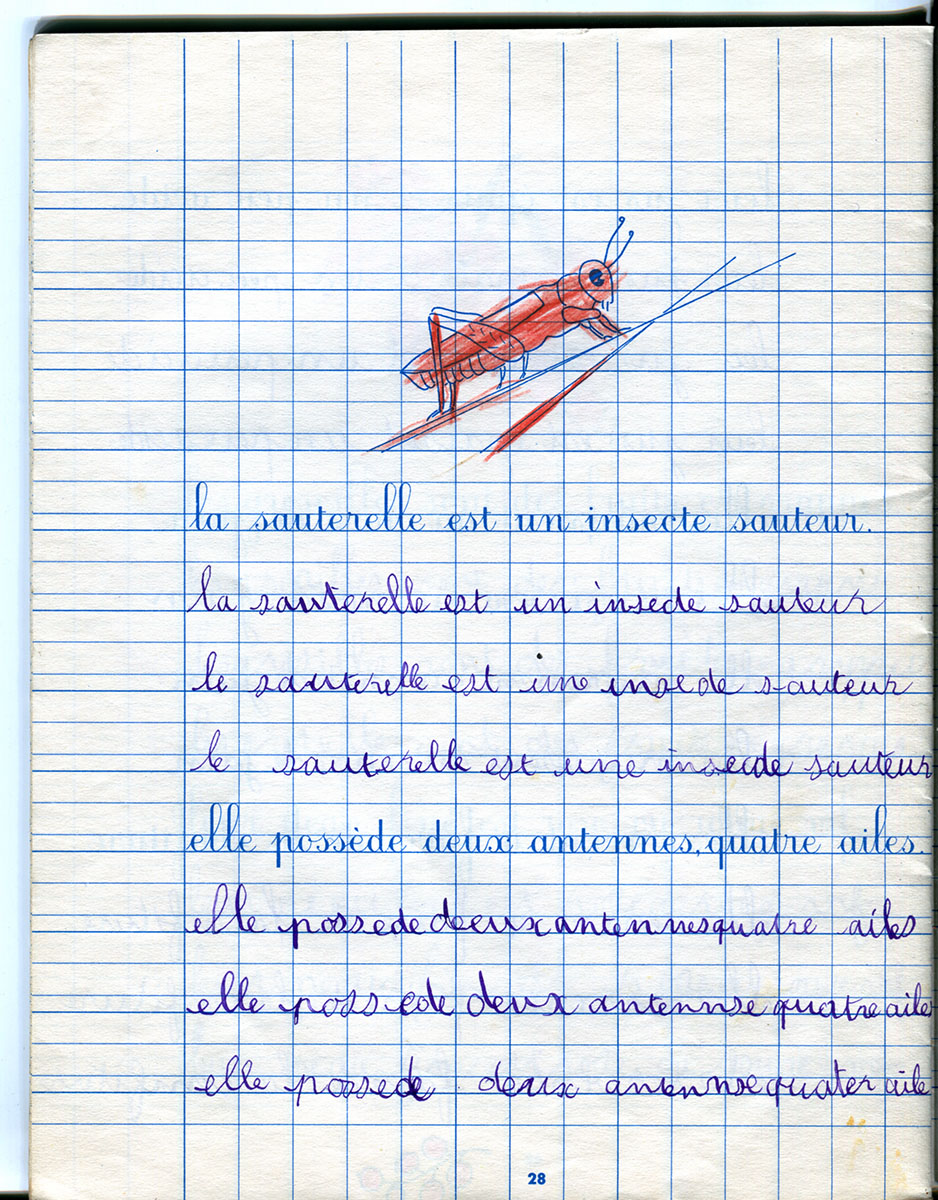 la sauterelle est un insecte sauteur.
la sauterelle est un insecde sauteur
le sauterelle est une insede sauteur
le sauterelle est une insecde sauteur
elle possède deux antennes, quatre ailes.
elle possede deux antennes quatre ailes
elle possede deux antennse quatre ailes
elle possede deux anennse quater aile
28